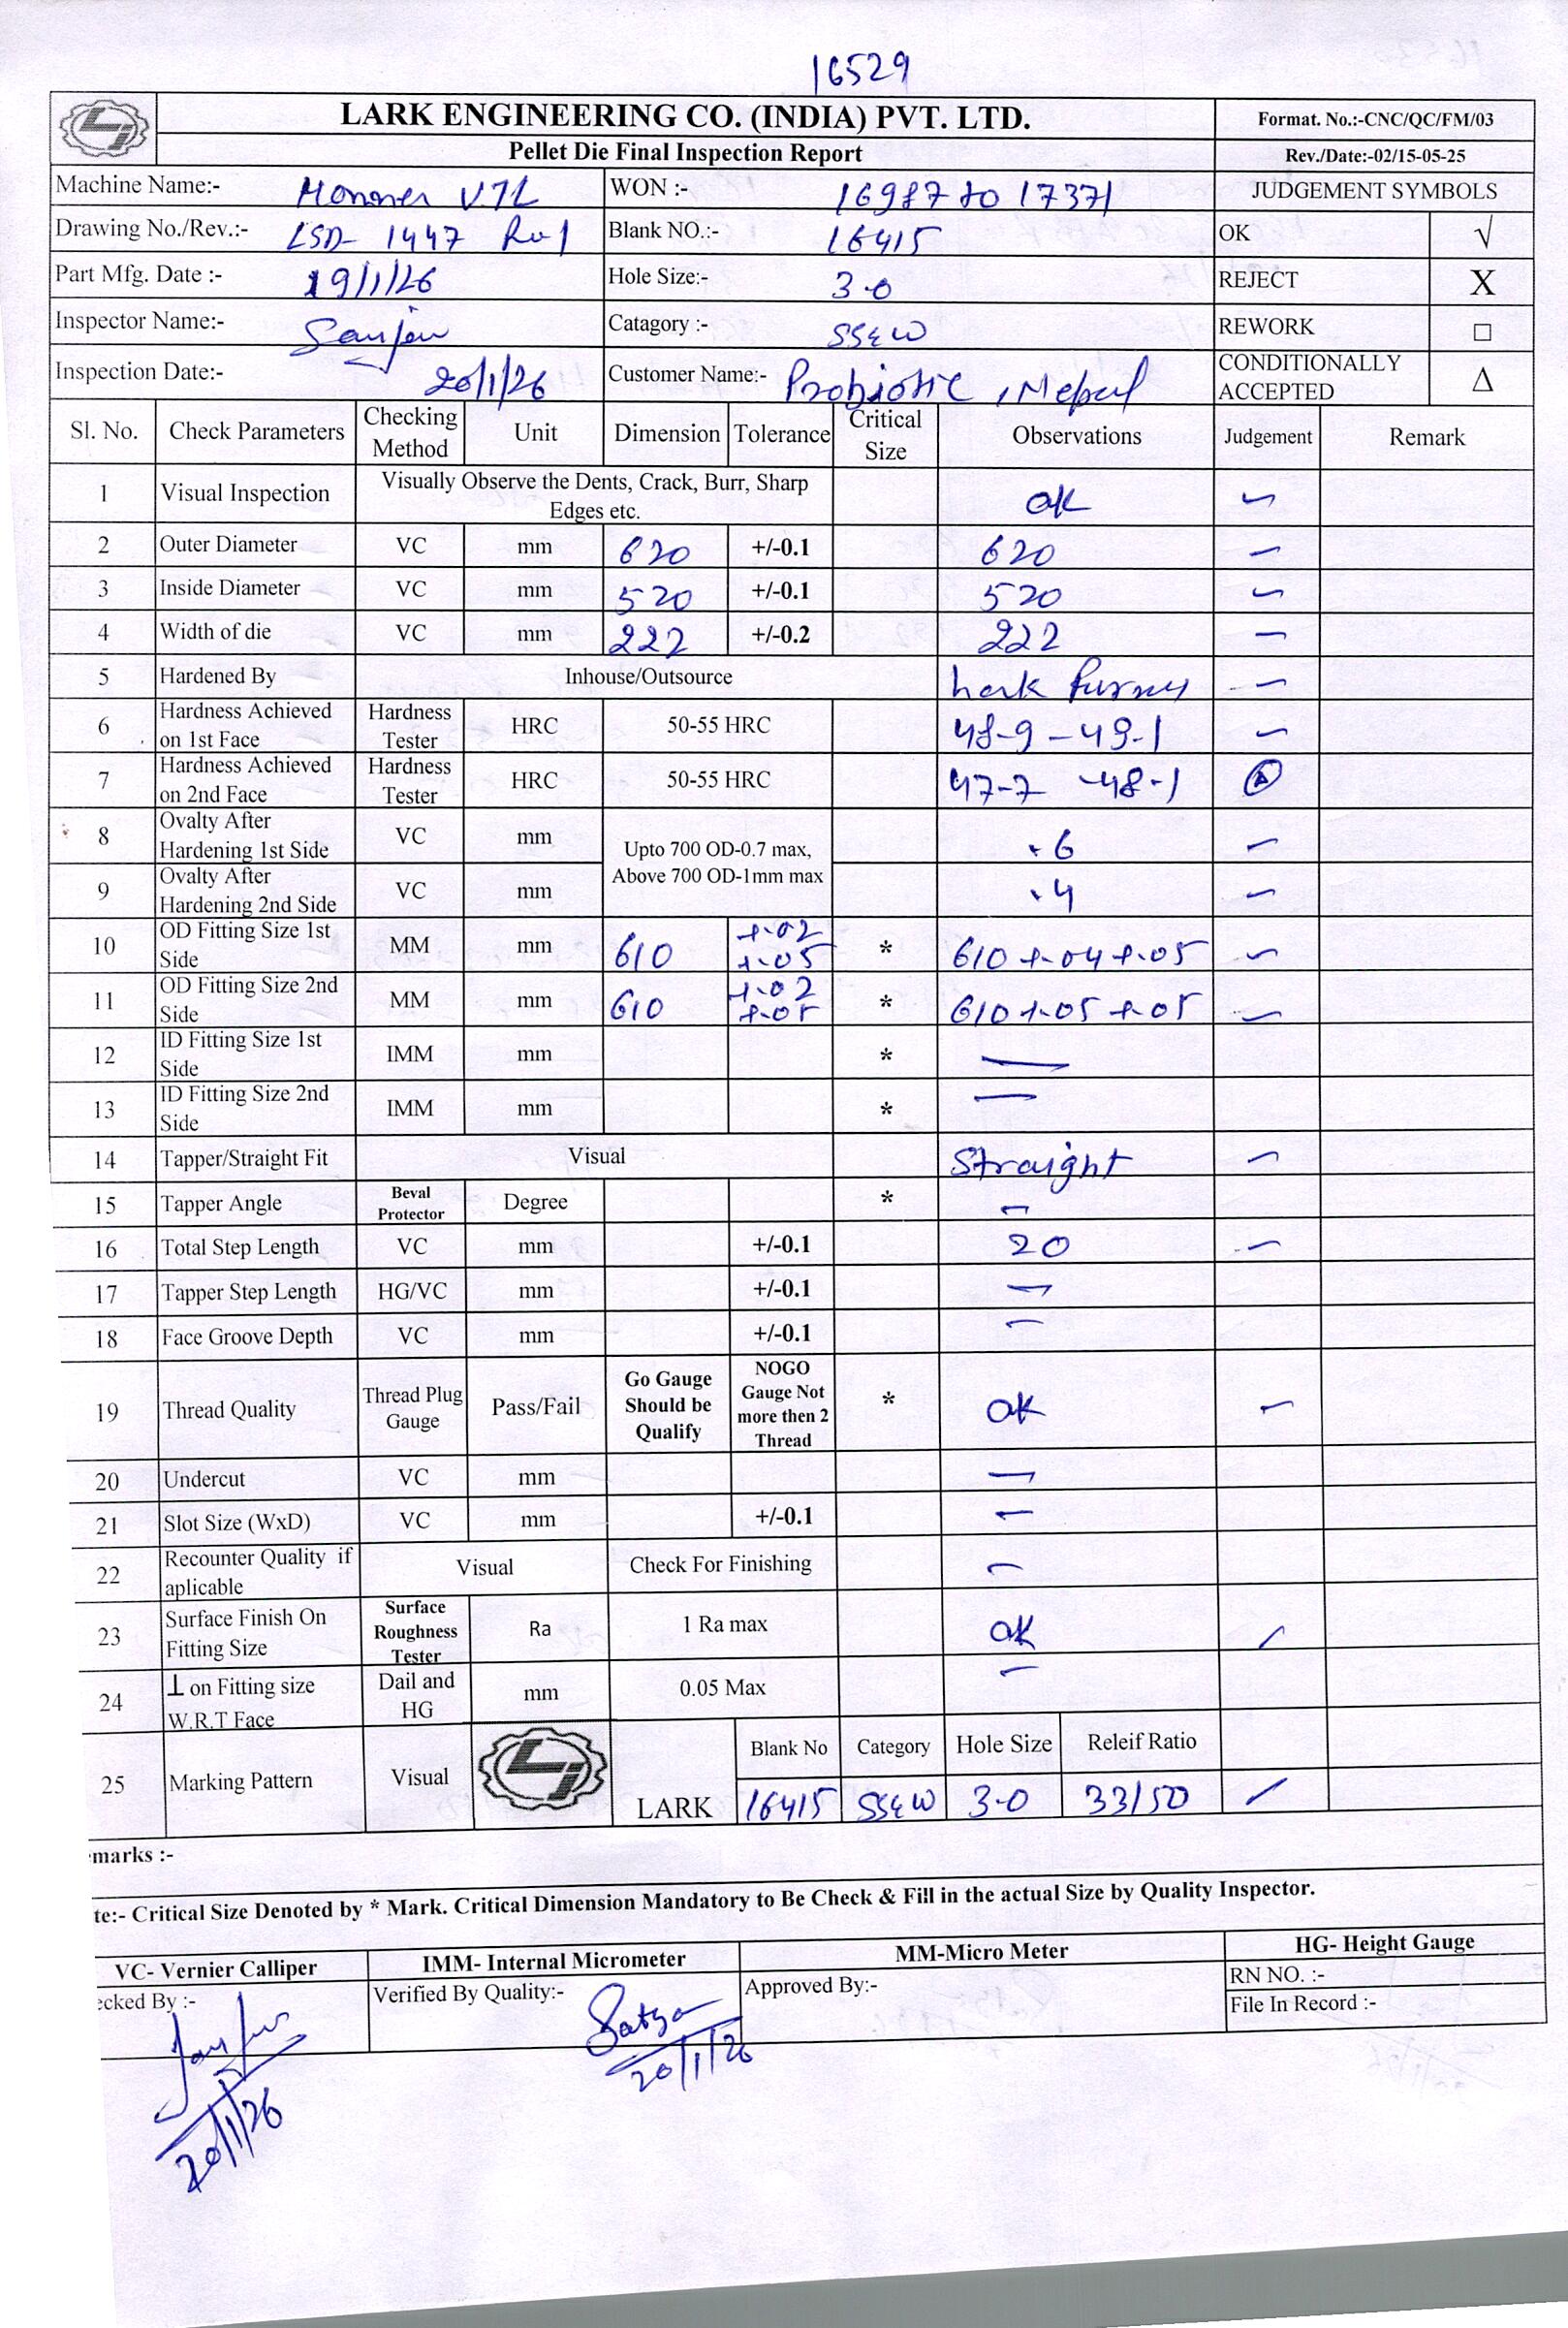 16529
LARK ENGINEERING CO. (INDIA) PVT. LTD. Format. No.:-CNC/QC/FM/03
Pellet Die Final Inspection Report Rev./Date:-02/15-05-25
Machine Name:- VTL WON :- 16987 to 17371 JUDGEMENT SYMBOLS
Drawing No./Rev.:- LSD- 1447 Blank NO.:- 16415 OK √
Part Mfg. Date :- 19/1/26 Hole Size:- 3.0 REJECT X
Inspector Name:- Catagory :- SS&W REWORK □
Inspection Date:- 20/1/26 Customer Name:- Probiotic, Nepal CONDITIONALLY ACCEPTED Δ
Sl. No. Check Parameters Checking Method Unit Dimension Tolerance Critical Size Observations Judgement Remark
1 Visual Inspection Visually Observe the Dents, Crack, Burr, Sharp Edges etc. ok
2 Outer Diameter VC mm 620 +/-0.1 620
3 Inside Diameter VC mm 520 +/-0.1 520
4 Width of die VC mm 222 +/-0.2 222
5 Hardened By Inhouse/Outsource
6 Hardness Achieved on 1st Face Hardness Tester HRC 50-55 HRC 48-9 - 49-1
7 Hardness Achieved on 2nd Face Hardness Tester HRC 50-55 HRC 47-7 -48-1
8 Ovalty After Hardening 1st Side VC mm Upto 700 OD-0.7 max, Above 700 OD-1mm max .6
9 Ovalty After Hardening 2nd Side VC mm .4
10 OD Fitting Size 1st Side MM mm 610 +.02 +.05 * 610 +.04 +.05
11 OD Fitting Size 2nd Side MM mm 610 +.02 +.05 * 610 +.05 +.05
12 ID Fitting Size 1st Side IMM mm * —
13 ID Fitting Size 2nd Side IMM mm * —
14 Tapper/Straight Fit Visual Straight
15 Tapper Angle Beval Protector Degree * —
16 Total Step Length VC mm +/-0.1 20
17 Tapper Step Length HG/VC mm +/-0.1 —
18 Face Groove Depth VC mm +/-0.1 —
19 Thread Quality Thread Plug Gauge Pass/Fail Go Gauge Should be Qualify NOGO Gauge Not more then 2 Thread * ok
20 Undercut VC mm —
21 Slot Size (WxD) VC mm +/-0.1 —
22 Recounter Quality if aplicable Visual Check For Finishing —
23 Surface Finish On Fitting Size Surface Roughness Tester Ra 1 Ra max ok
24 ⊥ on Fitting size W.R.T Face Dail and HG mm 0.05 Max —
25 Marking Pattern Visual LARK Blank No Category Hole Size Releif Ratio
16415 SS&W 3.0 33/50
marks :-
te:- Critical Size Denoted by * Mark. Critical Dimension Mandatory to Be Check & Fill in the actual Size by Quality Inspector.
VC- Vernier Calliper IMM- Internal Micrometer MM-Micro Meter HG- Height Gauge
ecked By :- Verified By Quality:- Approved By:- RN NO. :-
File In Record :-
Satya
20/1/26
20/1/26